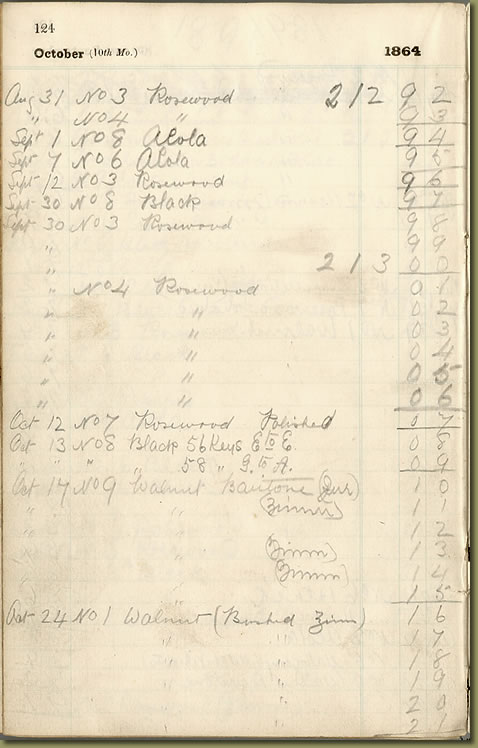 124
October (10th Mo.) 1864
Aug 31 No 3 Rosewood 212 9 2
" No 4 " 9 3
Sept 1 No 8 Aeola 9 4
Sept 7 No 6 Aeola 9 5
Sept 12 No 3 Rosewood 9 6
Sept 30 No 8 Black 9 7
Sept 30 No 3 Rosewood 9 8
" 9 9
" 213 0 0
" No 4 Rosewood 0 1
" " 0 2
" " 0 3
" " 0 4
" " 0 5
" " 0 6
Oct 12 No 7 Rosewood Polished 0 7
Oct 13 No 8 Black 56 Keys E to E. 0 8
" " " " 58 " G to A. 0 9
Oct 17 No 9 Walnut Baritone 1 0
" " (Zimm) 1 1
" " 1 2
" " (Zimm) 1 3
" " (Zimm) 1 4
" " 1 5
Oct 24 No 1 Walnut (Bushed Zimm) 1 6
" " " 1 7
" " " 1 8
" " " 1 9
" " " 2 0
" " " 2 1